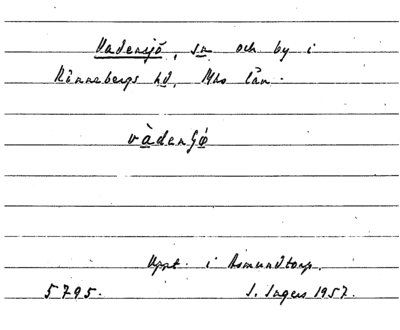 Vadensjö, sn och by i
Rönnebergs hd, Mhs län.
vàdenʃǿ
Uppt. i Asmundtorp.
5795. I. Ingers 1957.